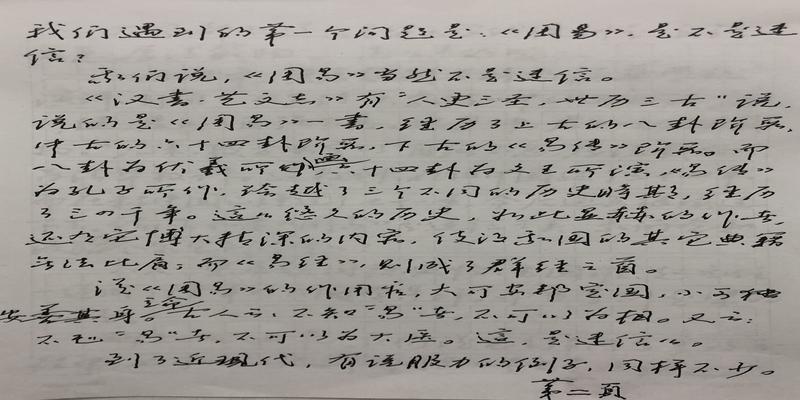 我们遇到的第一个问题是:《周易》,是不是迷
信?
我们说,《周易》当然不是迷信。
《汉书·艺文志》有"人更三圣,世历三古"说,
说的是《周易》一书,经历了上古的八卦阶段,
中古的六十四卦阶段,下古的《易经》阶段。而
八卦为伏羲所作画,六十四卦为文王所演,《易经》
为孔子所作,跨越了三个不同的历史时期,经历
了三四千年。这么悠久的历史,如此显赫的作者,
还有它博大精深的内容,使得我国的其它典籍
无法比肩;而《易经》,则成了群经之首。
说《周易》的作用和,大可安邦定国,小可独
善其身。古人云:不知"易"者,不可以为相。又云:
不知"易"者,不可以为大医。这,是迷信么。
到了近现代,有说服力的例子,同样不少。
第二页